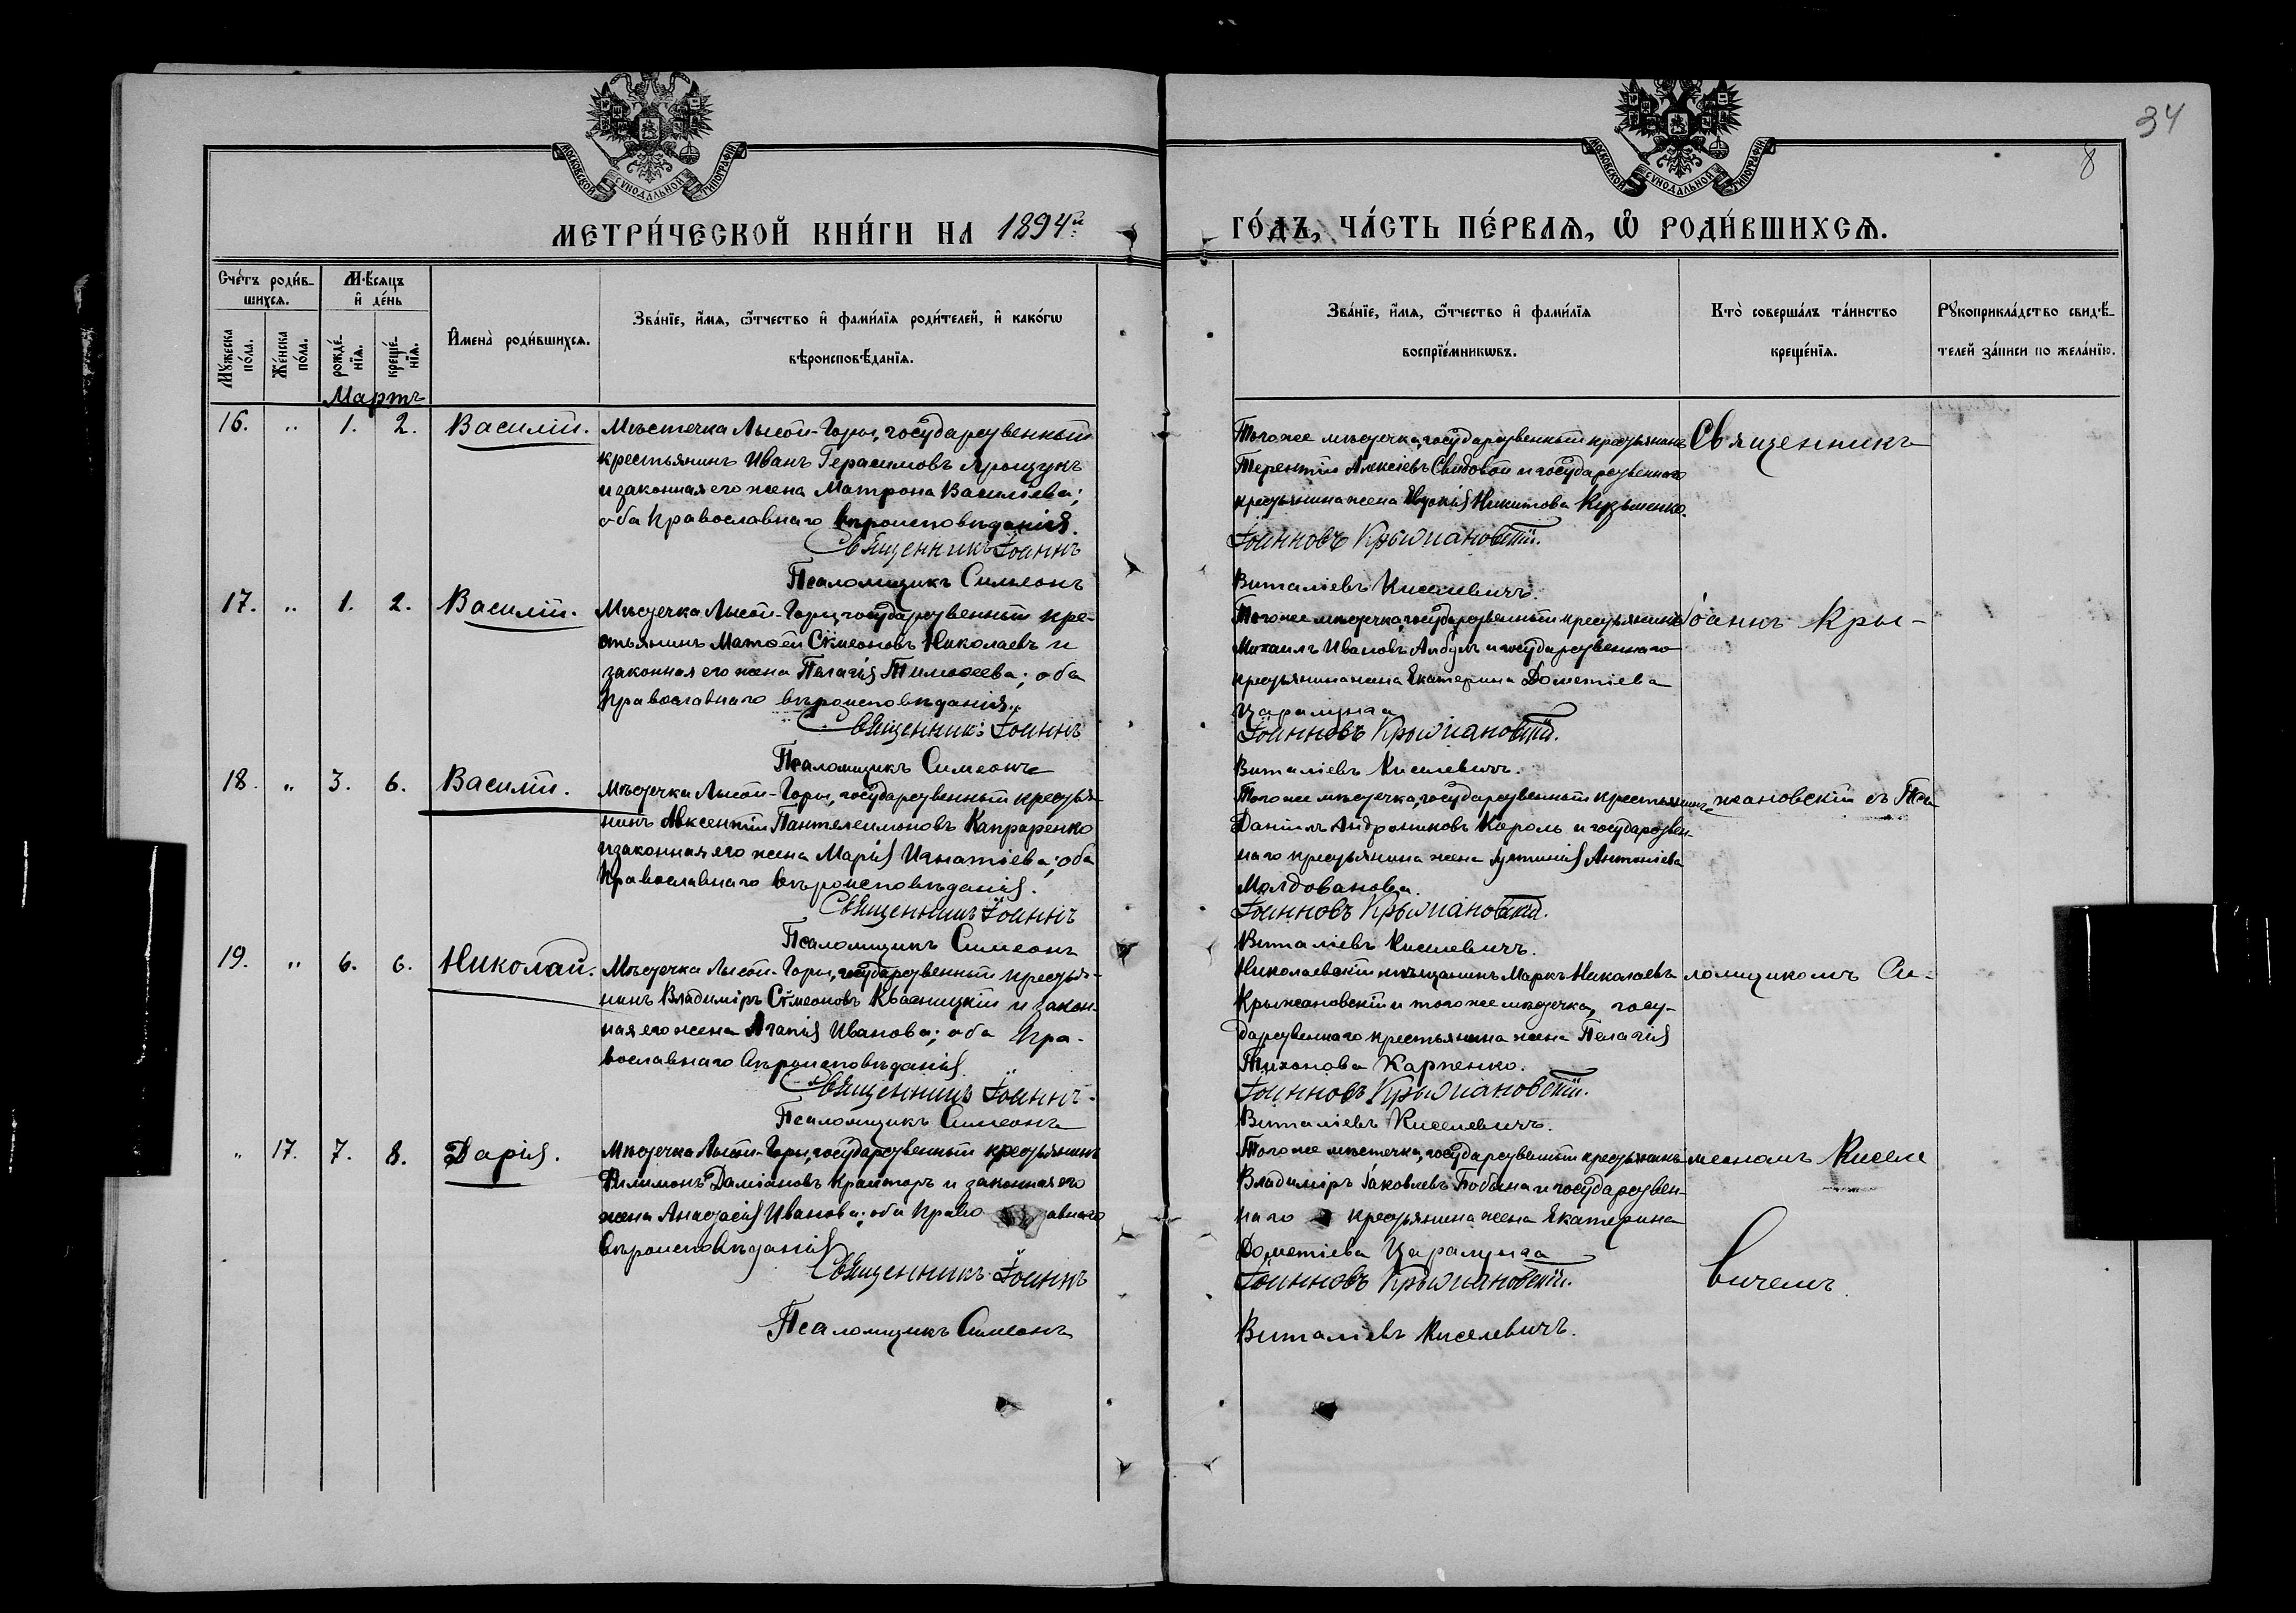 34
8
МОСКОВСКОЙ СѴНОДАЛЬНОЙ ТИПОГРАФІИ
МОСКОВСКОЙ СѴНОДАЛЬНОЙ ТИПОГРАФІИ
МЕТРИ́ЧЕСКОЙ КНИ́ГИ НА 1894й ГО́ДЪ, ЧА́СТЬ ПЕ́РВАѦ, Ѡ҆ РОДИ́ВШИХСѦ.
Сче́тъ роди́в-
шихсѧ.
Мꙋ́жеска по́ла.
Же́нска по́ла.
Мѣ́сѧцъ и҆ де́нь
рожде́-
нїѧ.
креще́-
нїѧ.
И҆мена̀ роди́вшихсѧ.
Зва́нїе, и҆́мѧ, ѻ҆́тчество и҆ фами́лїѧ роди́телей, и҆ како́гѡ
вѣроисповѣ́данїѧ.
Зва́нїе, и҆́мѧ, ѻ҆́тчество и҆ фами́лїѧ
воспрїе́мникѡвъ.
Кто̀ соверша́лъ та́инство
креще́нїѧ.
Рꙋкоприкла́дство свидѣ́-
телей за́писи по жела́нїю.
Мартъ
16. " 1. 2. Василій.
Мѣстечка Лысой-Горы, государственный
крестьянинъ Иванъ Герасимовъ Ярощукъ
и законная его жена Матрона Василіева;
оба Православнаго вѣроисповѣданія.
Священникъ Іоаннъ
Псаломщикъ Симеонъ
Тогоже мѣстечка, государственный крестьянинъ
Терентій Алексіевъ Свидовой и государственнаго
крестьянина жена Никитова Кузьменко.
Іоанновъ Крыжановскій.
Виталіевъ Киселевичъ.
Священникъ
17. " 1. 2. Василій.
Мѣстечка Лысой-Горы, государственный кре-
стьянинъ Матѳей Сѵмеоновъ Николаевъ и
законная его жена Пелагія Тимоѳеева; оба
Православнаго вѣроисповѣданія.
Священникъ Іоаннъ
Псаломщикъ Симеонъ
Тогоже мѣстечка, государственный крестьянинъ
Михаилъ Ивановъ Албулъ и государственнаго
крестьянина жена Екатерина Дометіева
Царалунга
Іоанновъ Крыжановскій.
Виталіевъ Киселевичъ.
Іоаннъ Кры-
18. " 3. 6. Василій.
Мѣстечка Лысой-Горы, государственный крестья-
нинъ Авксентій Пантелеимоновъ Капраренко
и законная его жена Марія Игнатіева; оба
Православнаго вѣроисповѣданія.
Священникъ Іоаннъ
Псаломщикъ Симеонъ
Тогоже мѣстечка, государственный крестьянинъ
Даніилъ Андрониковъ Король и государствен-
наго крестьянина жена Іустинія Антоніева
Молдованова.
Іоанновъ Крыжановскій.
Виталіевъ Киселевичъ.
жановскій съ Пса-
19. " 6. 6. Николай.
Мѣстечка Лысой-Горы, государственный крестья-
нинъ Владиміръ Сѵмеоновъ Квасницкій и закон-
ная его жена Агапія Иванова; оба Пра-
вославнаго вѣроисповѣданія
Священникъ Іоаннъ
Псаломщикъ Симеонъ
Николаевскій мѣщанинъ Маркъ Николаевъ
Крыжановскій и тогоже мѣстечка, госу-
дарственнаго крестьянина жена Пелагія
Тихонова Карпенко.
Іоанновъ Крыжановскій.
Виталіевъ Киселевичъ.
ломщикомъ Си-
" 17. 7. 8. Дарія.
Мѣстечка Лысой-Горы, государственный крестьянинъ
Филимонъ Даміановъ Крайторъ и законная его
жена Анастасія Иванова; оба Право авнаго
вѣроисповѣданія
Священникъ Іоаннъ
Псаломщикъ Симеонъ
Тогоже мѣстечка, государственный крестьянинъ
Владиміръ Іаковлевъ Побына и государствен-
наго крестьянина жена Екатерина
Дометіева Царалунга
Іоанновъ Крыжановскій.
Виталіевъ Киселевичъ.
меономъ Киселе
вичемъ.